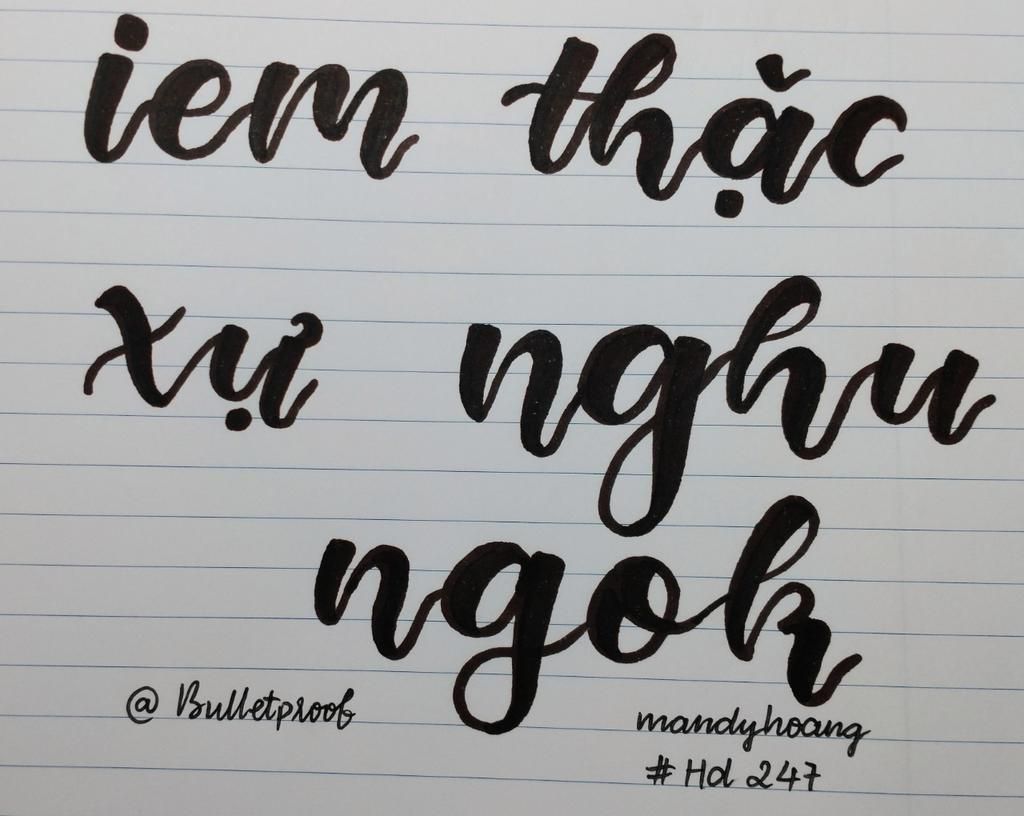 iem thặc
xự nghu
ngok
@ Bulletproof
mandyhoang
# Hd 247